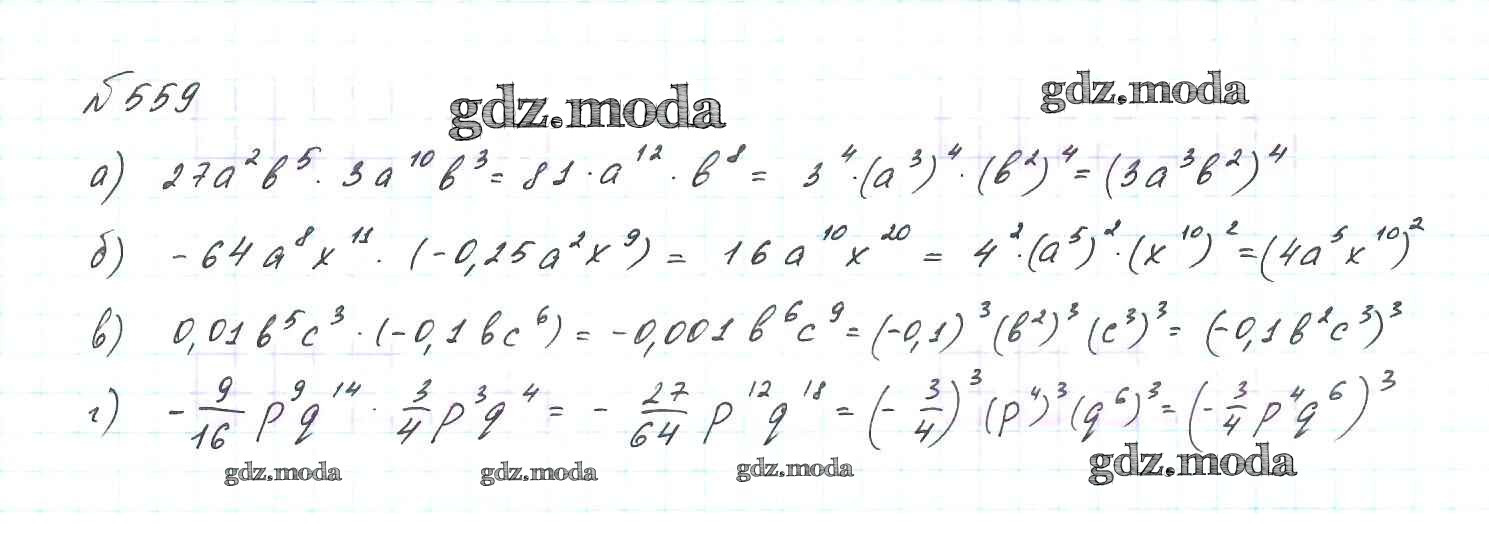 № 559
gdz.moda
gdz.moda
а) 27a²b⁵ · 3a¹⁰b³ = 81 · a¹² · b⁸ = 3⁴ · (a³)⁴ · (b²)⁴ = (3a³b²)⁴
б) -64a⁸x¹¹ · (-0,25a²x⁹) = 16a¹⁰x²⁰ = 4² · (a⁵)² · (x¹⁰)² = (4a⁵x¹⁰)²
в) 0,01b⁵c³ · (-0,1bc⁶) = -0,001b⁶c⁹ = (-0,1)³(b²)³(c³)³ = (-0,1b²c³)³
г) -9/16 p⁹q¹⁴ · 3/4 p³q⁴ = -27/64 p¹²q¹⁸ = (-3/4)³(p⁴)³(q⁶)³ = (-3/4 p⁴q⁶)³
gdz.moda
gdz.moda
gdz.moda
gdz.moda